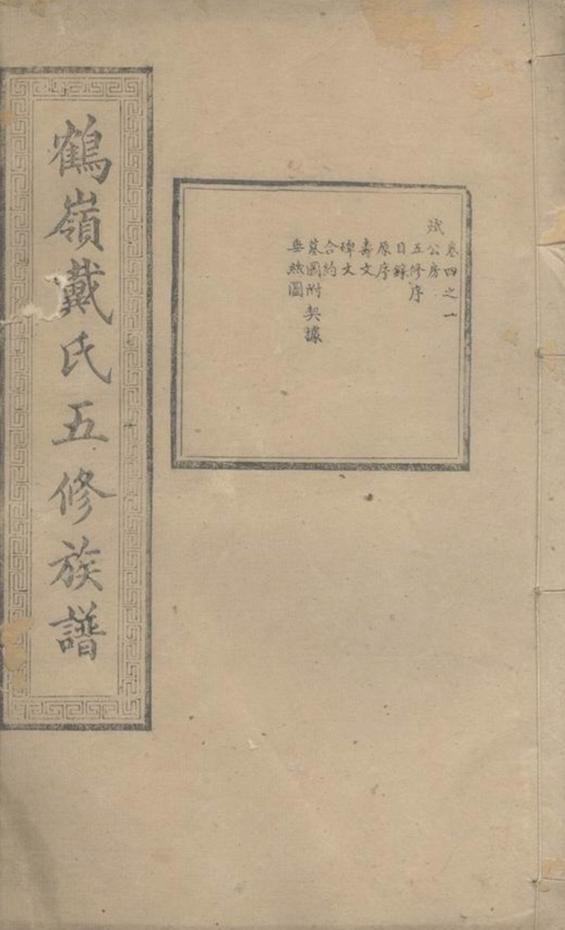 鶴嶺戴氏五修族譜
卷四之一
斌公房
五修序
目錄
原序
壽文
碑文
合約
墓圖附契據
垂絲圖